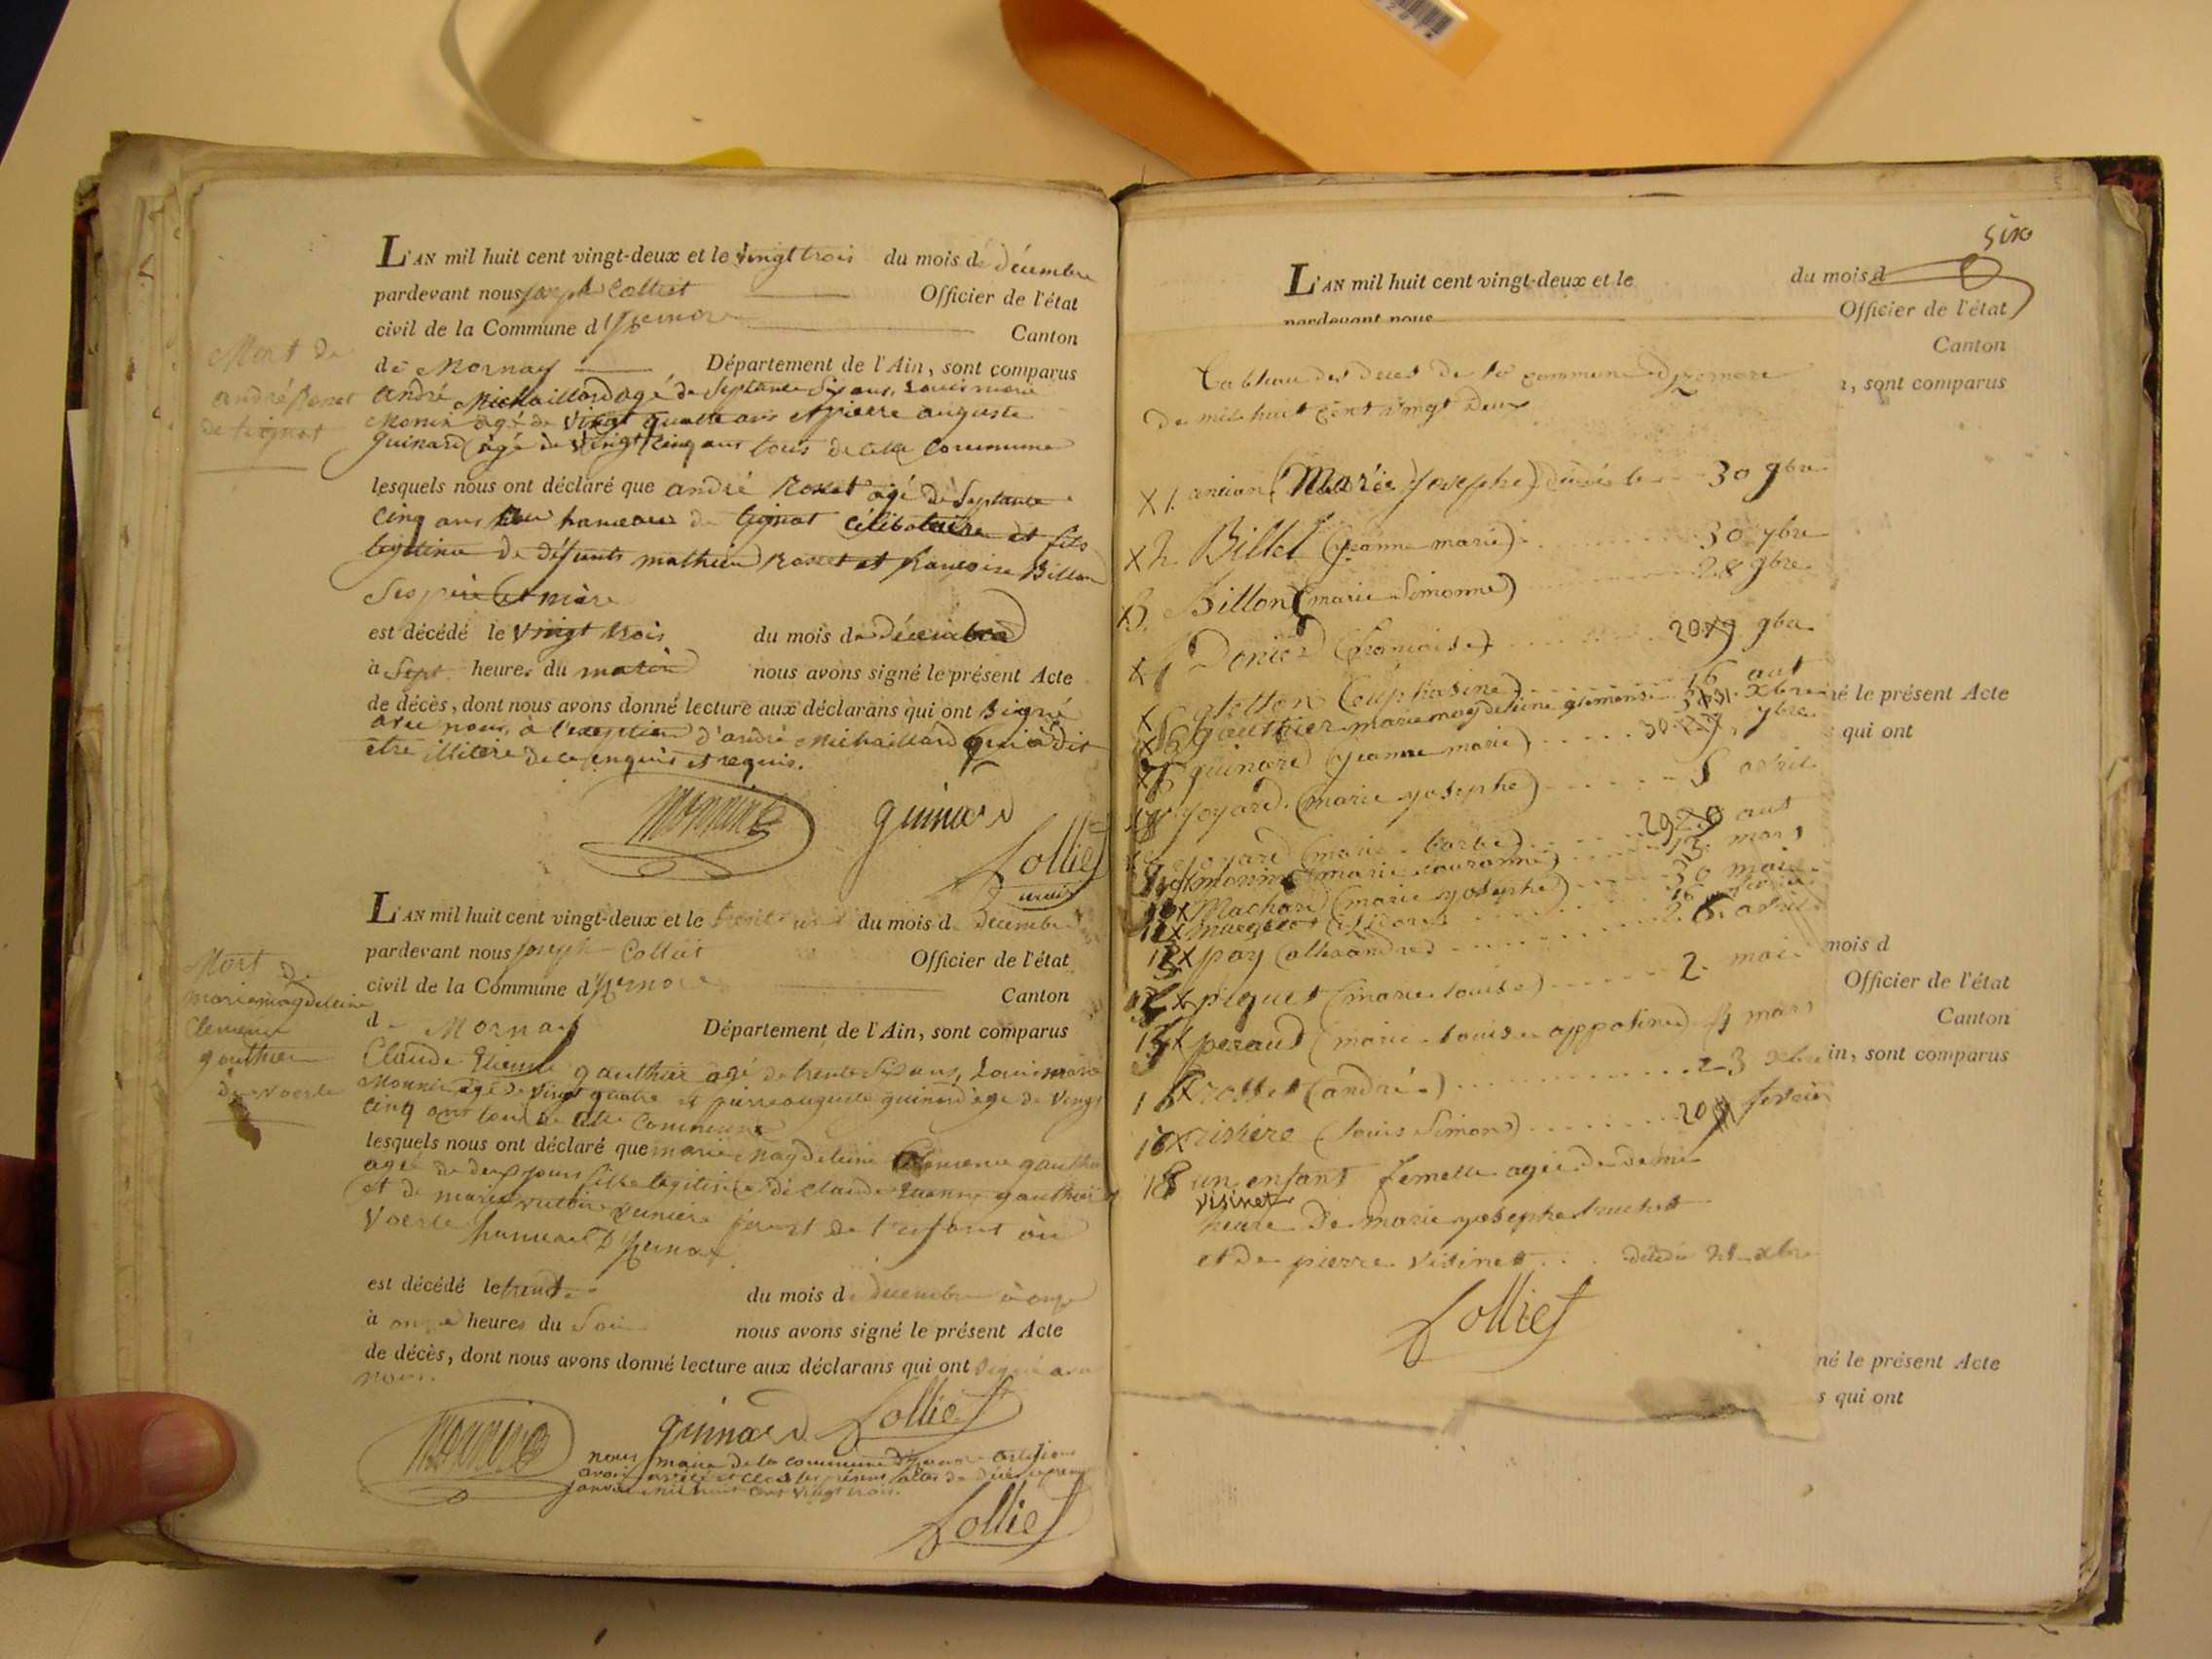 L'AN mil huit cent vingt-deux et le vingt trois du mois de décembre
pardevant nous joseph Colliet Officier de l'état
civil de la Commune d' Canton
de Mornay Département de l'Ain, sont comparus
andré Michaillard agé de septante six ans, Louis marie
Monin agé de vingt quatre ans et pierre auguste
guinard agé de vingt cinq ans tous de cette commune
lesquels nous ont déclaré que andré Roset agé de septante
cinq ans hameau de célibataire et fils
legitime de défunts mathieu Roset et françoise Billon
ses père et mère
est décédé le vingt trois du mois de décembre
à sept heures du matin nous avons signé le présent Acte
de décès, dont nous avons donné lecture aux déclarans qui ont signé
avec nous, à l'exception d'andré Michaillard qui a dit
etre illitere de ce enquis et requis.
Mort de
andré Roset
de
Monnin guinard
Colliet
maire
L'AN mil huit cent vingt-deux et le trente un du mois de décembre
pardevant nous joseph Colliet Officier de l'état
civil de la Commune d' Canton
de Mornay Département de l'Ain, sont comparus
Claude Etienne gauthier agé de trente six ans, Louis marie
Monnin agé de vingt quatre et pierre auguste guinard agé de vingt
cinq ans tous de cette commune
lesquels nous ont déclaré que marie magdeleine Clemence gauthier
agée de deux jours fille legitime de claude Etienne gauthier
et de marie
Voerle hameau
est décédé le trente du mois de décembre à onze
à onze heures du soir nous avons signé le présent Acte
de décès, dont nous avons donné lecture aux déclarans qui ont signé avec
nous.
Mort de
marie magdeleine
Clemence
gauthier
de Voerle
Monnin guinard Colliet
nous maire de la commune
avoir arrêté et clos les présens actes de décès le premier
janvier mil huit cent vingt trois.
Colliet
L'AN mil huit cent vingt-deux et le du mois d
pardevant nous Officier de l'état
Canton
, sont comparus
Tableau des décès de la commune
De mil huit cent vingt deux
X 1. ancian (Marie Josephe) décédé le 30 9bre
X 2 Billet (jeanne marie) 30 7bre
X 3. Billon (marie simonne) 28 9bre
X 4 (françoise) 20 9bre
X (euphrasine) 16 aut
X 6 gauthier marie magdeleine clemence 31 xbre
X 7 guinard (jeanne marie) 30 7bre
8 joyard (marie josephe) 5 avril
joyard (marie barbe) 29 aut
monin (marie ) 13 mars
X Machard (marie josephe) 30 mai
16
X pay (allexandre) avril
X piquet (marie louise) 2 mai
X peraud (marie louise appoline) 4 mars
X rosset (andré) 23 xbre
X (louis simon) 20 fevrier
18 un enfant femelle agée de demi
visinet
heure de marie josephe
et de pierre visinet décédé 21 xbre
Colliet
né le présent Acte
qui ont
mois d
Officier de l'état
Canton
in, sont comparus
né le présent Acte
s qui ont